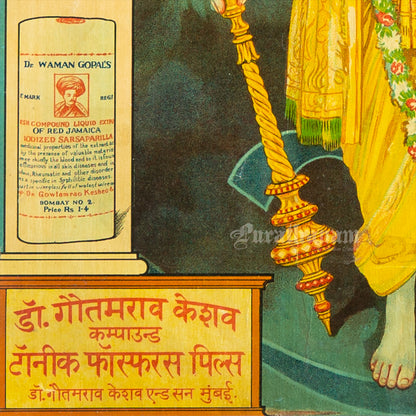 Dr WAMAN GOPAL'S
E MARK REGI
ESH COMPOUND LIQUID EXTR
OF RED JAMAICA
IODIZED SARSAPARILLA
medicinal properties of the extract ar
by the presence of valuable materia
mes chiefly the blood and so it is
in all skin diseases and
Rheumatic and other disorder
specific in Syphilitic diseases.
of water
Dr Gowtamrao Keshao &
BOMBAY NO 2.
Price Rs 1-4
डॉ. गौतमराव केशव
कम्पाउन्ड
टॉनीक फॉस्फरस पिल्स
डॉ. गौतमराव केशव एन्ड सन मुंबई.